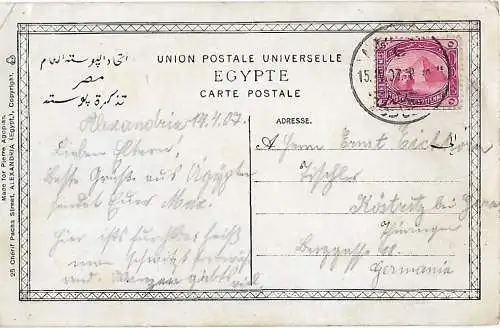 اتحاد البوسته العام
مصر
تذكرة بوسته
UNION POSTALE UNIVERSELLE
EGYPTE
CARTE POSTALE
ADRESSE.
Made for Pierre Agopian,
25 Chérif Pacha Street, ALEXANDRIA (Egypt), Copyright.
Alexandria 14.4.07.
Lieben Eltern,
beste Grüße aus Ägypten
sendet Euer Max.
Hier ists furchtbar heiß
man schwitzt
und. Morgen
A Herrn Ernst
Tischler
Köstritz bei Gera
Thüringen
Berggasse
Germania